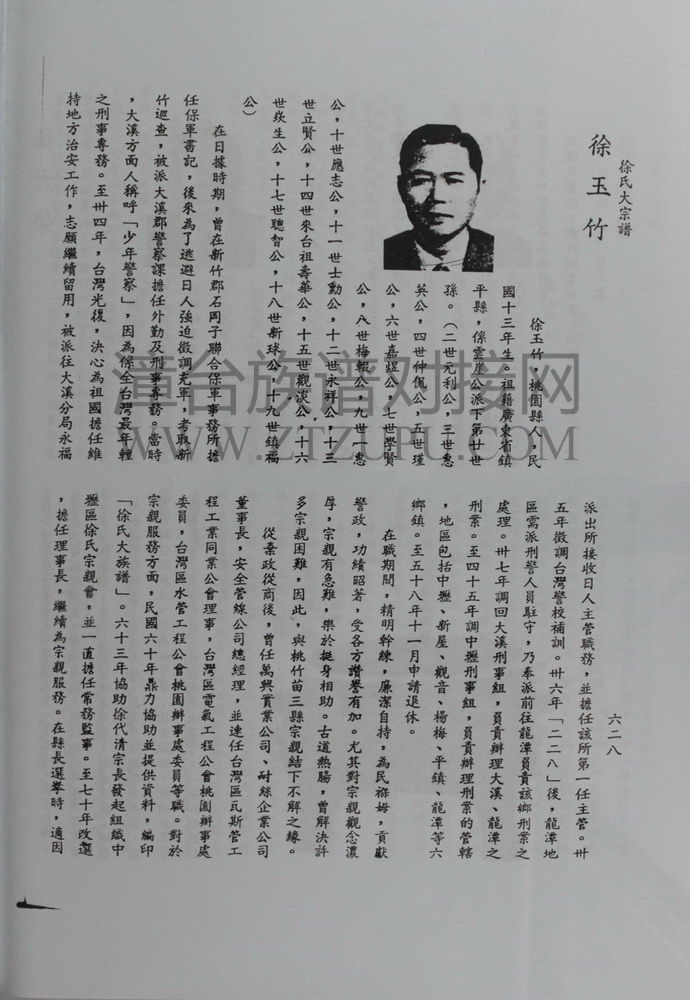 徐氏大宗譜
徐玉竹
徐玉竹，桃園縣人，民
國十三年生。祖籍廣東省鎮
平縣，係雲崖公派下第廿世
孫。（二世元利公，三世惠
英公，四世仲佩公，五世瑾
公，六世嘉煋公，七世學賢
公，八世梅報公，九世一惠
公，十世應志公，十一世士勳公，十二世永祥公，十三
世立賢公，十四世來台祖壽華公，十五世觀淡公，十六
世崁生公，十七世聰智公，十八世新球公，十九世鎮福
公）
在日據時期，曾在新竹郡石岡子聯合保軍事務所擔
任保軍書記，後來為了逃避日人強迫徵調充軍，考取新
竹巡查，被派大溪郡警察課擔任外勤及刑事專務。當時
，大溪方面人稱呼「少年警察」，因為係全台灣最年輕
之刑事專務。至卅四年，台灣光復，決心為祖國擔任維
持地方治安工作，志願繼續留用，被派往大溪分局永福
六二八
派出所接收日人主管職務，並擔任該所第一任主管。卅
五年徵調台灣警校補訓。卅六年「二二八」後，龍潭地
區需派刑警人員駐守，乃奉派前往龍潭員責該鄉刑案之
處理。卅七年調回大溪刑事組，員責辦理大溪、龍潭之
刑案。至四十五年調中壢刑事組，員責辦理刑案的管轄
，地區包括中壢、新屋、觀音、楊梅、平鎮、龍潭等六
鄉鎮。至五十八年十一月申請退休。
在職期間，精明幹練，廉潔自持，為民褓姆，貢獻
警政，功績昭著，受各方讚譽有加。尤其對宗親觀念濃
厚，宗親有急難，樂於挺身相助。古道熱腸，曾解決許
多宗親困難，因此，與桃竹苗三縣宗親結下不解之緣。
從棄政從商後，曾任萬興實業公司、耐絲企業公司
董事長，安全管線公司總經理，並連任台灣區瓦斯管工
程工業同業公會理事，台灣區電氣工程公會桃園辦事處
委員，台灣區水管工程公會桃園辦事處委員等職。對於
宗親服務方面，民國六十年鼎力協助並提供資料，編印
「徐氏大族譜」。六十三年協助徐代清宗長發起組織中
壢區徐氏宗親會，並一直擔任常務監事。至七十年改選
，擔任理事長，繼續為宗親服務。在縣長選舉時，適因
漳台族谱对接网
WWW.ZTZUPU.COM